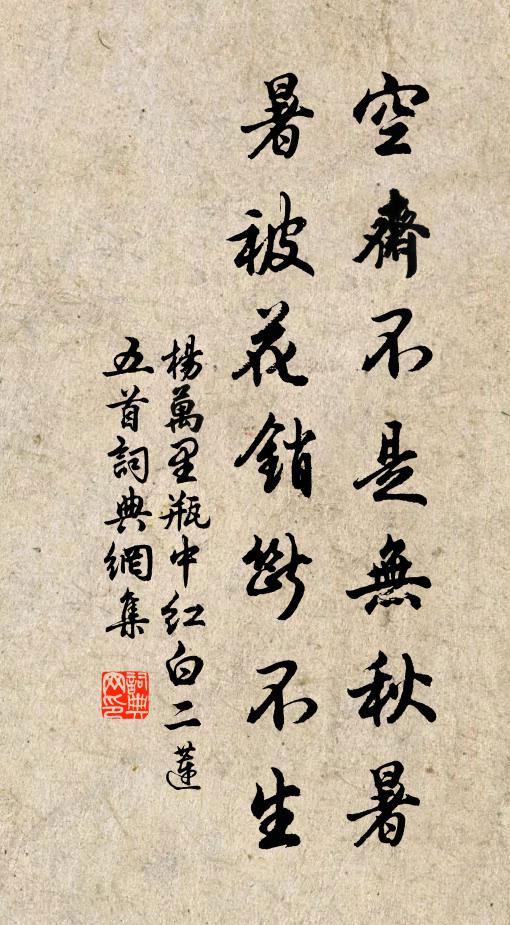 空齋不是無秋暑
暑被花銷斷不生
楊萬里瓶中紅白二蓮
五首詞典網集
詞典网印